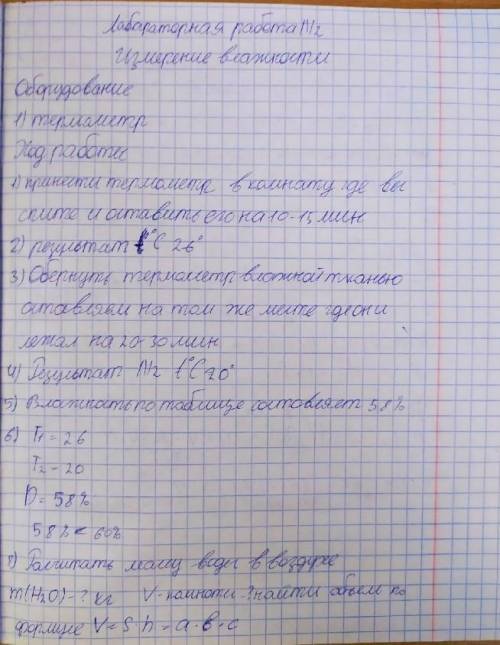 Лабораторная работа №2
Измерение влажности
Оборудование
1) термометр
Ход работы
1) принести термометр в комнату где вы
спите и оставить его на 10-15 мин
2) результат t°C 26°
3) Обернуть термометр влажной тканью
оставляем на том же месте где он и
лежал на 20-30 мин
4) Результат №2 t°C 20°
5) Влажность по таблице составляет 58%
6) T1 = 26
T2 - 20
D = 58%
58% < 60%
Расчитать массу воды в воздухе
m(H2O) - ? кг V - комнаты - ? найти объем по
формуле V = S·h = a·b·c